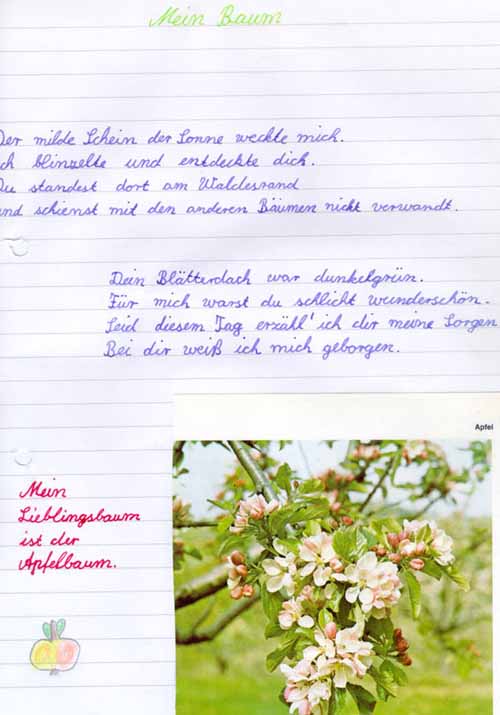 Mein Baum
Der milde Schein der Sonne weckte mich.
Ich blinzelte und entdeckte dich.
Du standest dort am Waldesrand
und schienst mit den anderen Bäumen nicht verwandt.
Dein Blätterdach war dunkelgrün.
Für mich warst du schlicht wunderschön.
Seid diesem Tag erzähl' ich dir meine Sorgen
Bei dir weiß ich mich geborgen.
Apfel
Mein
Lieblingsbaum
ist der
Apfelbaum.